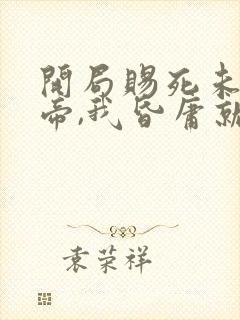 開局賜死未
帝,我昏庸就
袁荣祥